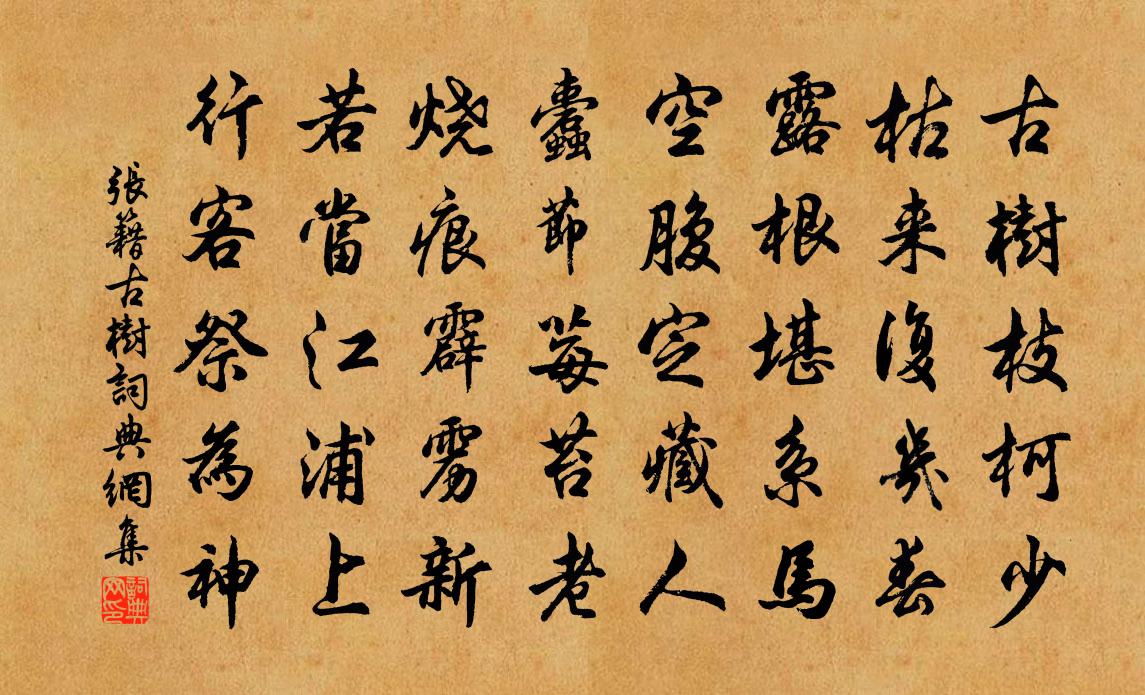 古樹枝柯少
枯来復幾春
露根堪系馬
空腹定藏人
蠹節莓苔老
烧痕霹雳新
若當江浦上
行客祭為神
張籍古樹詞典網集
詞典網印